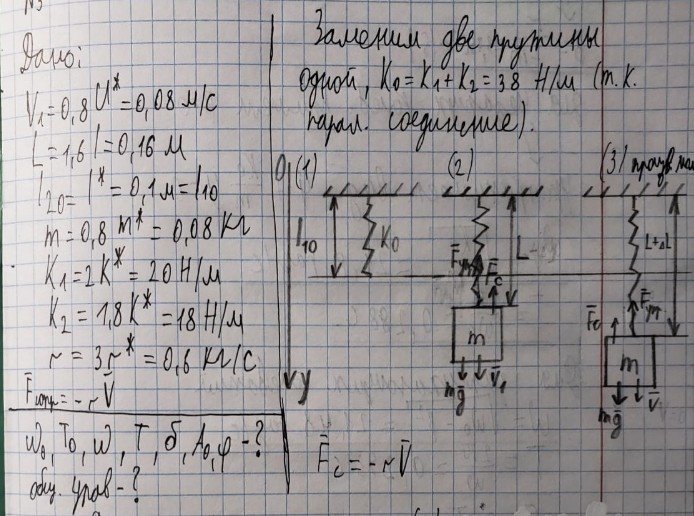 N3
Дано:
V₁=0,8 U*=0,08 м/с
L=1,6 l=0,16 м
l₂₀= l*=0,1м=l₁₀
m=0,8 m*=0,08 кг
K₁=2K*=20 Н/м
K₂=1,8K*=18 Н/м
r=3r*=0,6 кг/с
F̄сопр=-rV̄
ω₀, T₀, ω, T, б, A₀, φ-?
общ. урав-?
Заменим две пружины
одной, K₀=K₁+K₂=38 Н/м (т.к.
парал. соединение).
0 (1) (2) (3)
l₁₀ K₀ F̄уп L L+ΔL
F̄c F̄c F̄уп
m m
mḡ V̄₁ mḡ V̄
y
F̄c=-rV̄